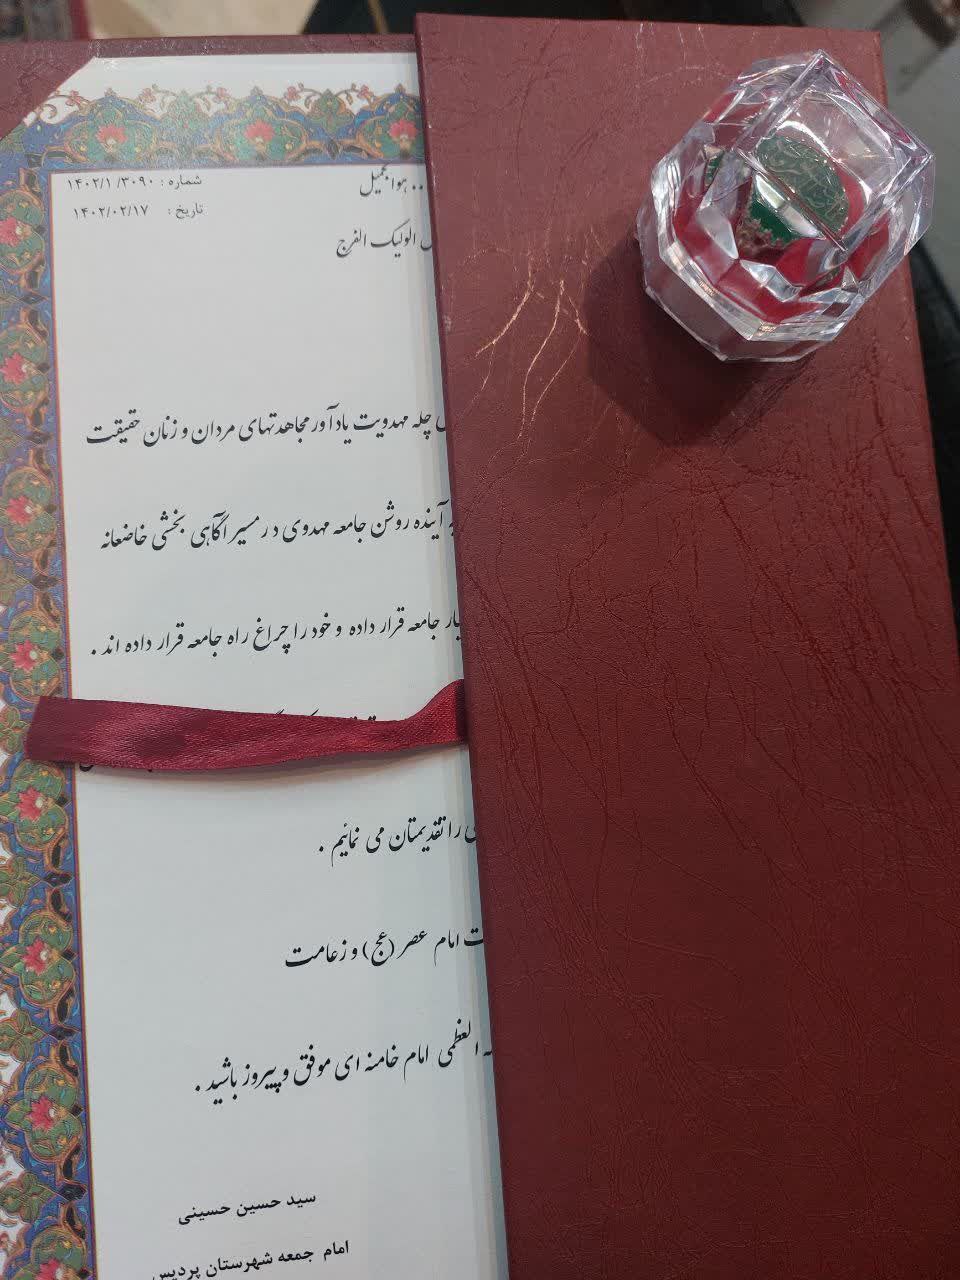 هوالجمیل
شماره : ۱۴۰۲/۱/۳۰۹۰
تاریخ : ۱۴۰۲/۰۲/۱۷
لولیک الفرج
چله مهدویت یادآور مجاهدتهای مردان و زنان حقیقت
آینده روشن جامعه مهدوی در مسیر آگاهی بخشی خاضعانه
جامعه قرار داده و خود را چراغ راه جامعه قرار داده اند .
را تقدیمتان می نمائیم .
امام عصر (عج) و زعامت
العظمی امام خامنه ای موفق و پیروز باشید .
سید حسین حسینی
امام جمعه شهرستان پردیس